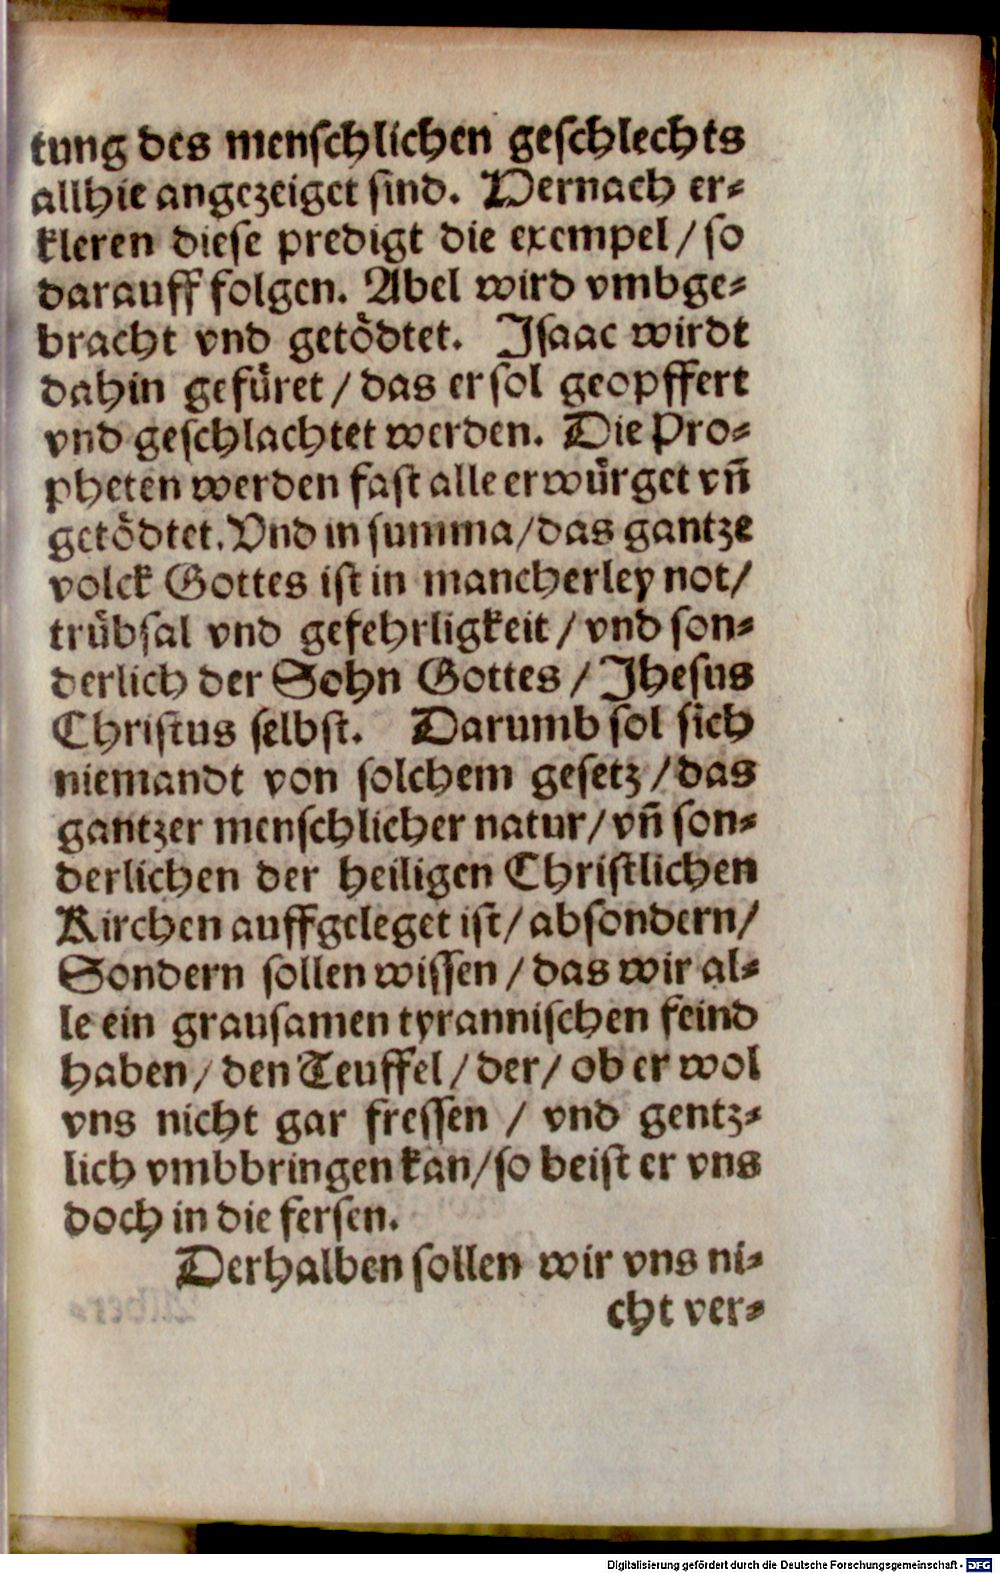 tung des menschlichen geschlechts
allhie angezeiget sind. Dernach er-
kleren diese predigt die exempel / so
darauff folgen. Abel wird vmbge-
bracht vnd getödtet. Isaac wirdt
dahin gefüret / das er sol geopffert
vnd geschlachtet werden. Die Pro-
pheten werden fast alle erwürget vñ
getödtet. Vnd in summa / das gantze
volck Gottes ist in mancherley not /
trübsal vnd gefehrligkeit / vnd son-
derlich der Sohn Gottes / Jhesus
Christus selbst. Darumb sol sich
niemandt von solchem gesetz / das
gantzer menschlicher natur / vñ son-
derlichen der heiligen Christlichen
Kirchen auffgeleget ist / absondern /
Sondern sollen wissen / das wir al-
le ein grausamen tyrannischen feind
haben / den Teuffel / der / ob er wol
vns nicht gar fressen / vnd gentz-
lich vmbbringen kan / so beist er vns
doch in die fersen.
Derhalben sollen wir vns ni-
cht ver-
Digitalisierung gefördert durch die Deutsche Forschungsgemeinschaft - DFG